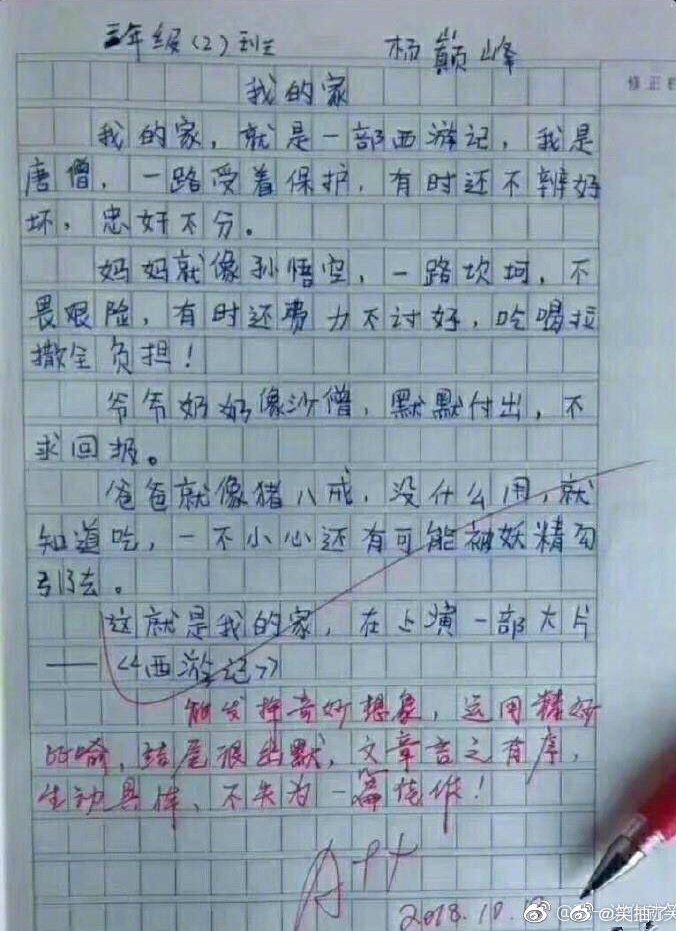 三年级(2)班 杨巅峰
我的家
修正栏
我的家，就是一部西游记，我是
唐僧，一路受着保护，有时还不辨好
坏，忠奸不分。
妈妈就像孙悟空，一路坎坷，不
畏艰险，有时还费力不讨好，吃喝拉
撒全负担！
爷爷奶奶像沙僧，默默付出，不
求回报。
爸爸就像猪八戒，没什么用，就
知道吃，一不小心还有可能被妖精勾
引去。
这就是我的家，在上演一部大片
——《西游记》
能发挥奇妙想象，运用精妙
比喻，结尾很幽默，文章言之有序，
生动具体、不失为一篇佳作！
A++
2018.10.